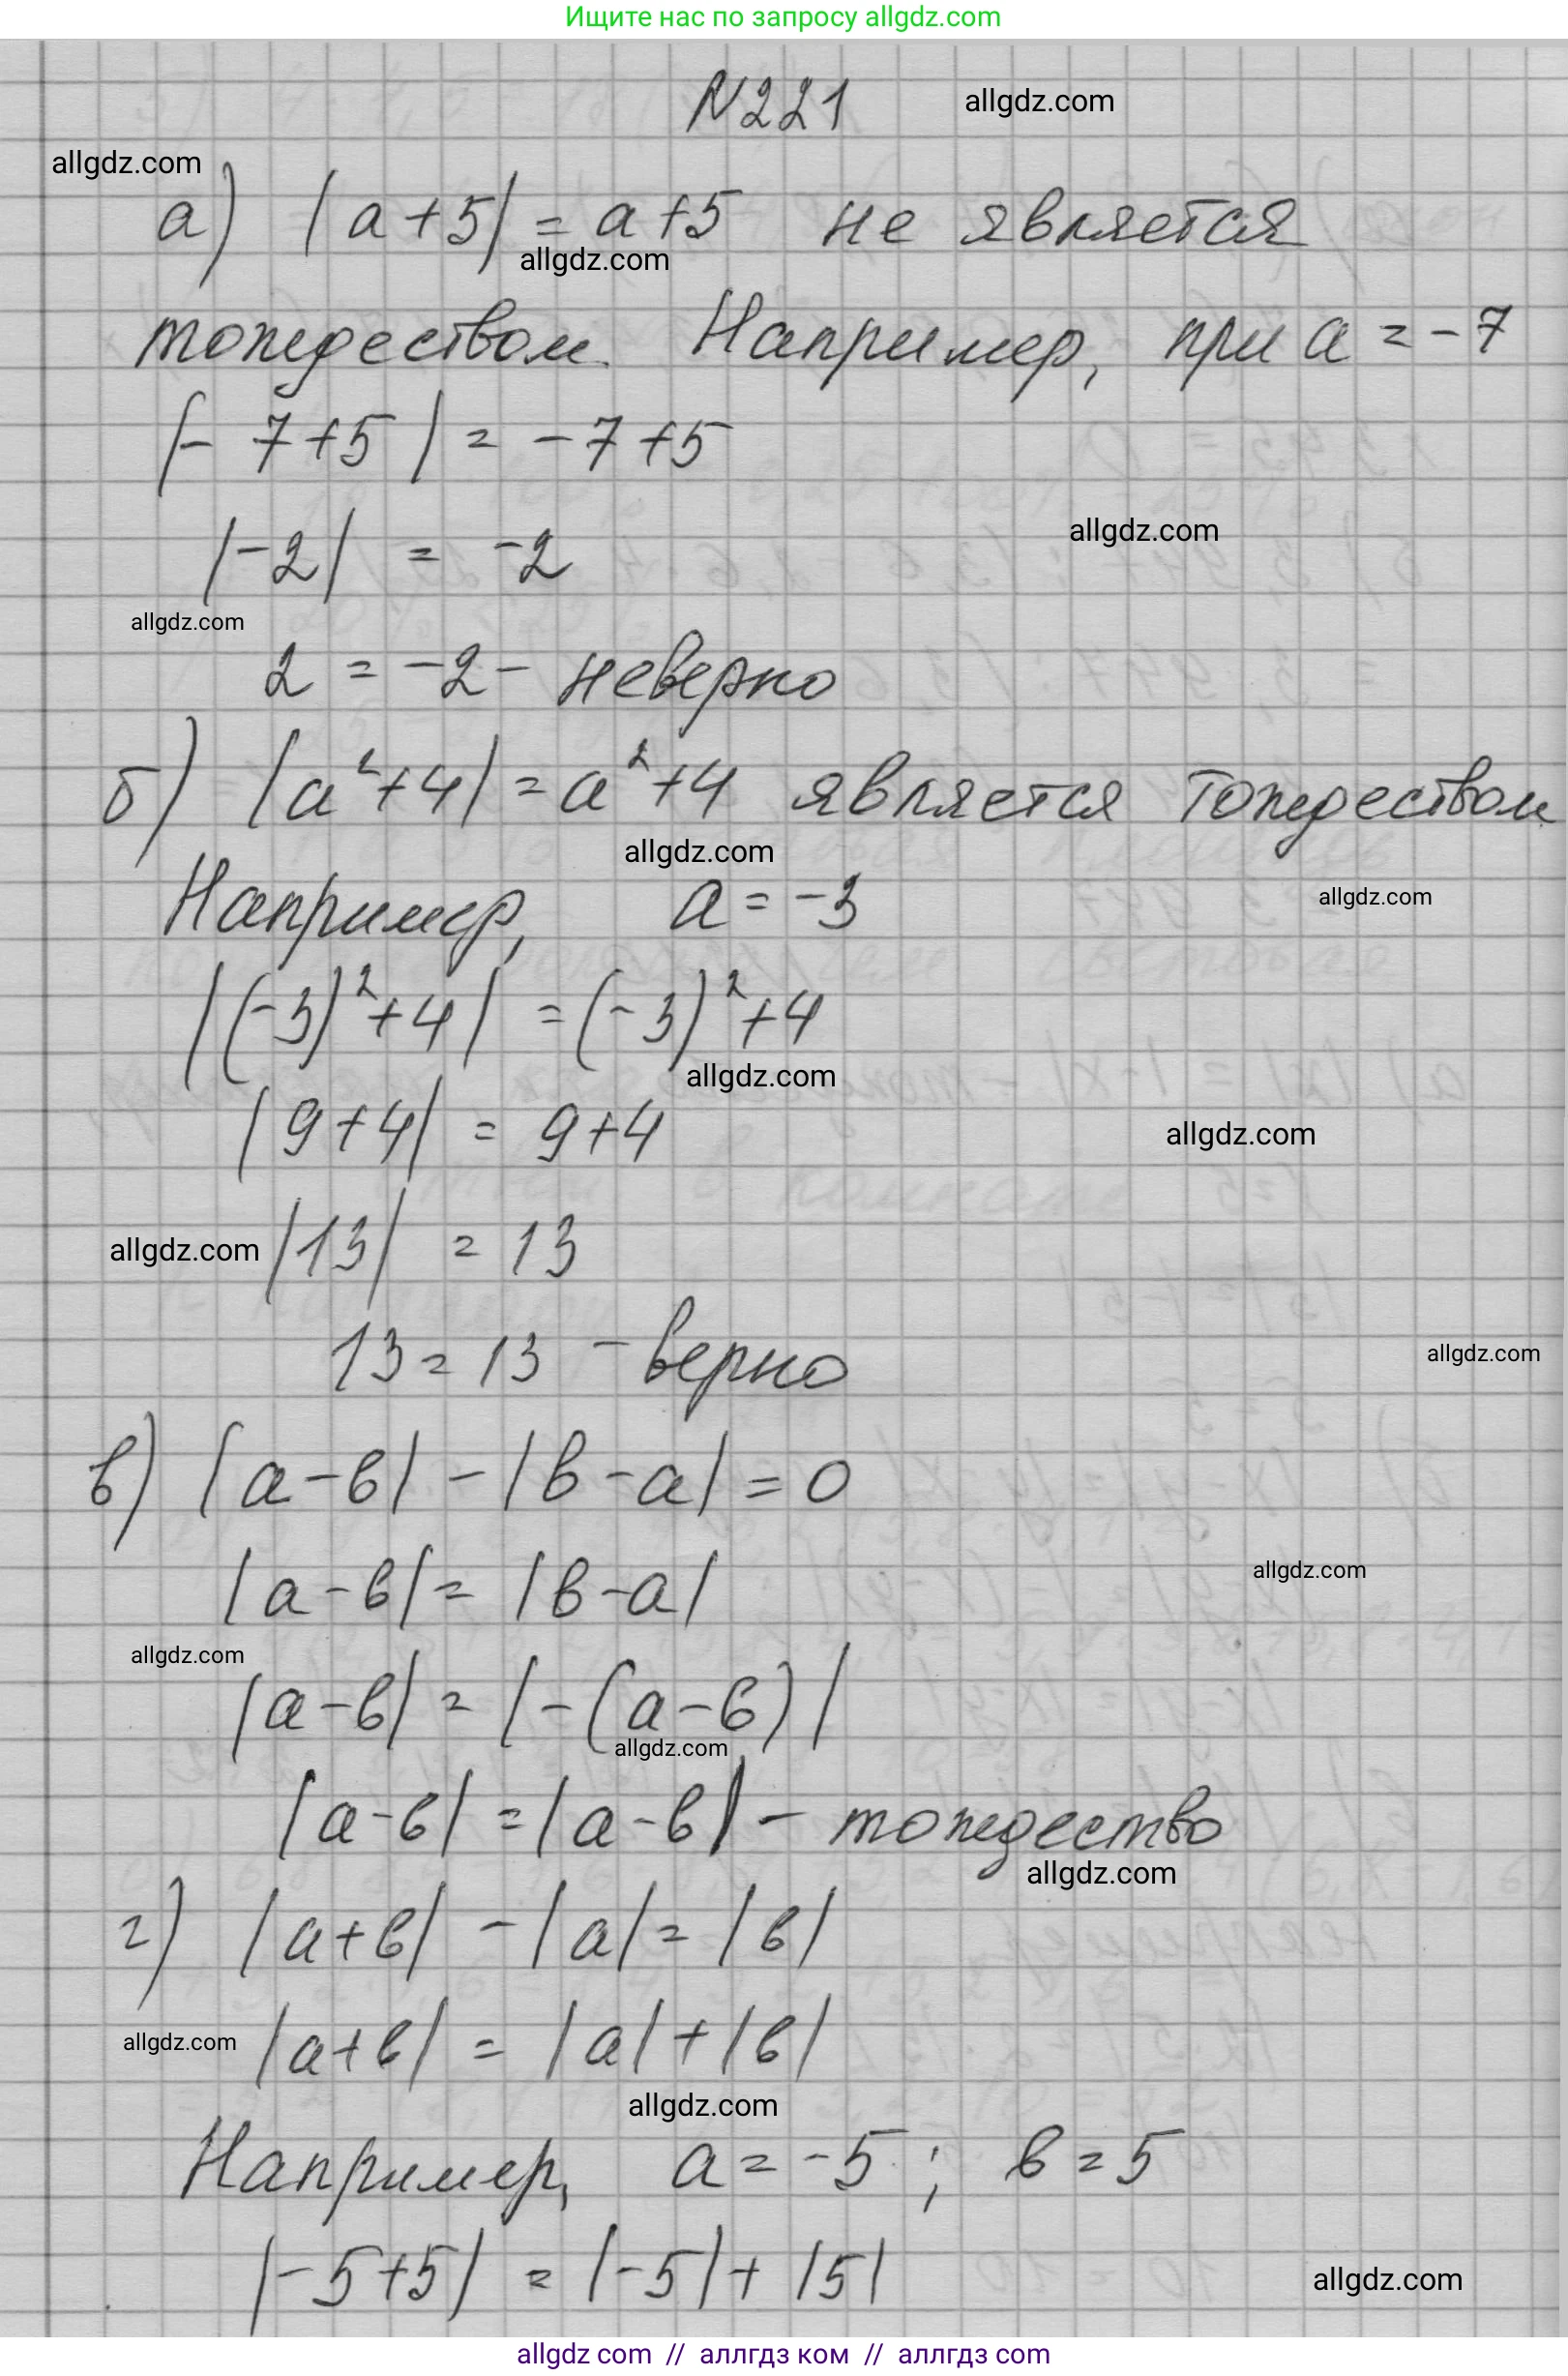 Ищите нас по запросу allgdz.com
N221 allgdz.com
allgdz.com
а) |a+5| = a+5 не является
allgdz.com
тождеством. Например, при a = -7
|-7+5| = -7+5
allgdz.com
|-2| = -2
allgdz.com
2 = -2 - неверно
б) |a²+4| = a²+4 является тождеством
allgdz.com
Например, a = -3 allgdz.com
|(-3)²+4| = (-3)²+4
allgdz.com
|9+4| = 9+4 allgdz.com
allgdz.com |13| = 13
13 = 13 - верно allgdz.com
в) |a-в| - |в-a| = 0
|a-в| = |в-a| allgdz.com
allgdz.com
|a-в| = |-(a-в)|
allgdz.com
|a-в| = |a-в| - тождество
allgdz.com
г) |a+в| - |a| = |в|
allgdz.com |a+в| = |a| + |в|
allgdz.com
Например, a = -5; в = 5
|-5+5| = |-5| + |5| allgdz.com
allgdz com // аллгдз ком // аллгдз com